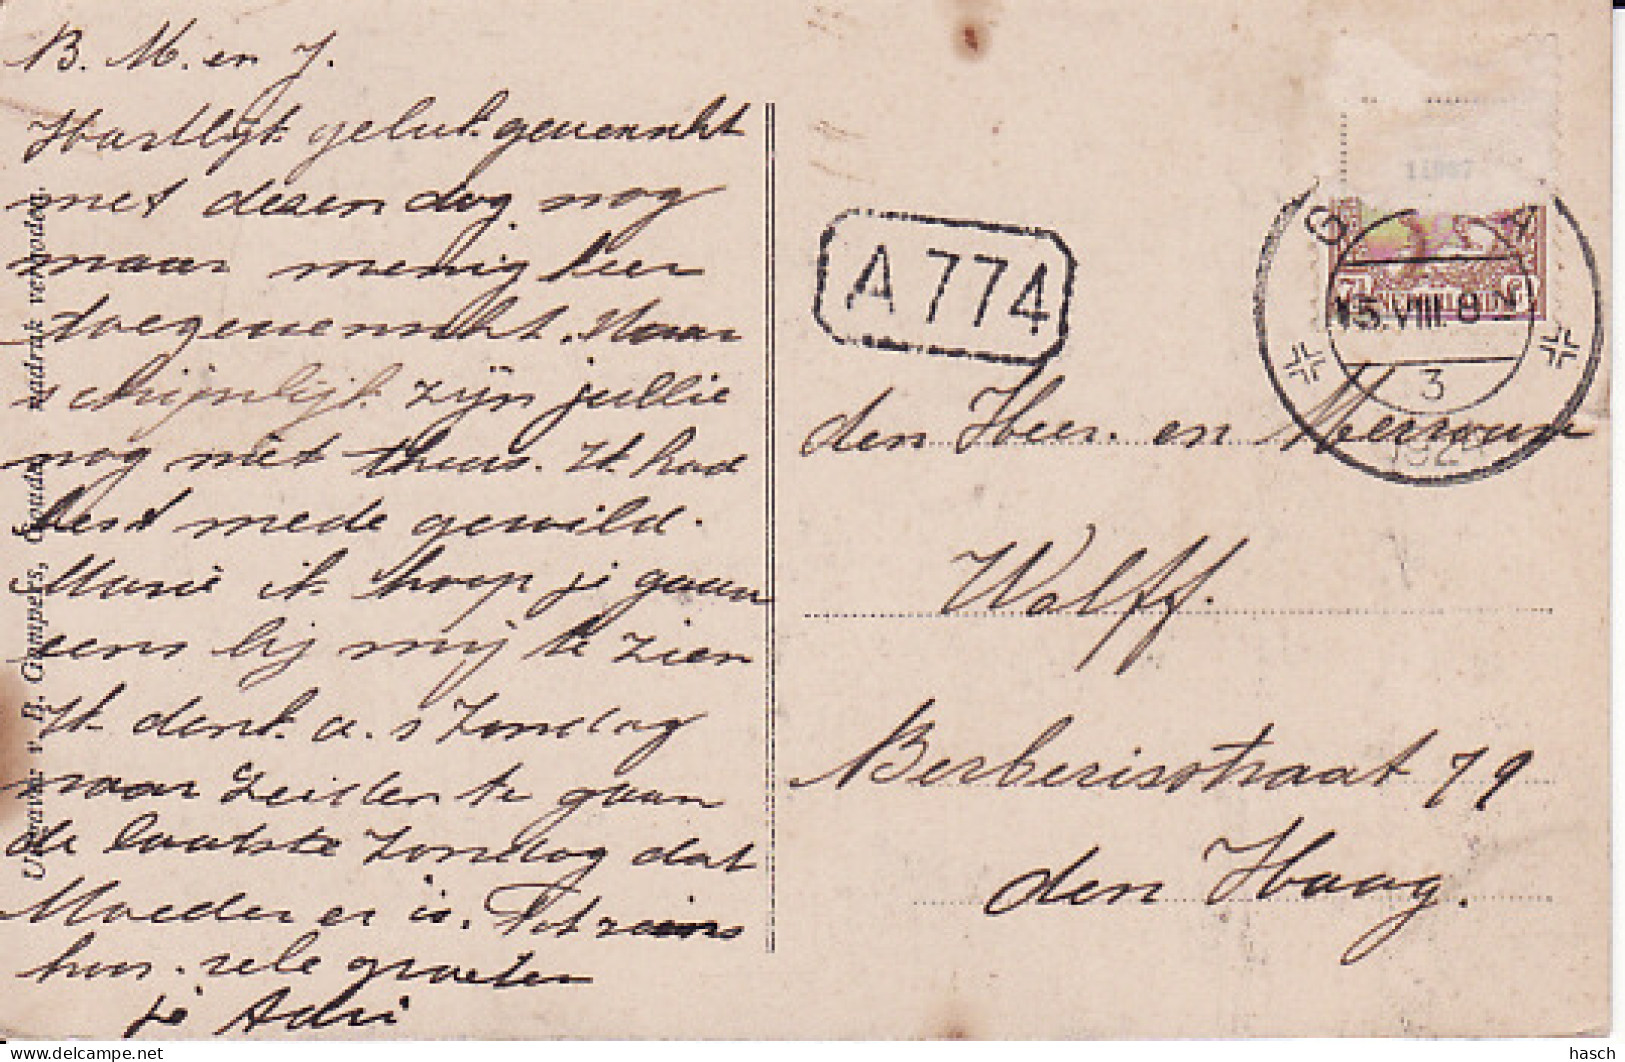 B. M. en J.
Hartlijk geluk gewenscht
met dezen dag nog
maar menig keer
toegewenscht. Maar
schijnlijk zijn jullie
nog niet thuis. Ik had
best mede gewild.
Marie ik hoop je gauw
eens bij mij te zien
Ik denk a. s Zondag
naar Leiden te gaan
de laatste Zondag dat
Moeder er is. Tot ziens
hoor. vele groeten
je Adri
Uitgave v. B. Gompers, Gouda, nadruk verboden.
A 774
11987
15.VIII. 8 N
3
192
den Heer en Mevrouw
Wolff.
Berberisstraat 79
den Haag.
hasch